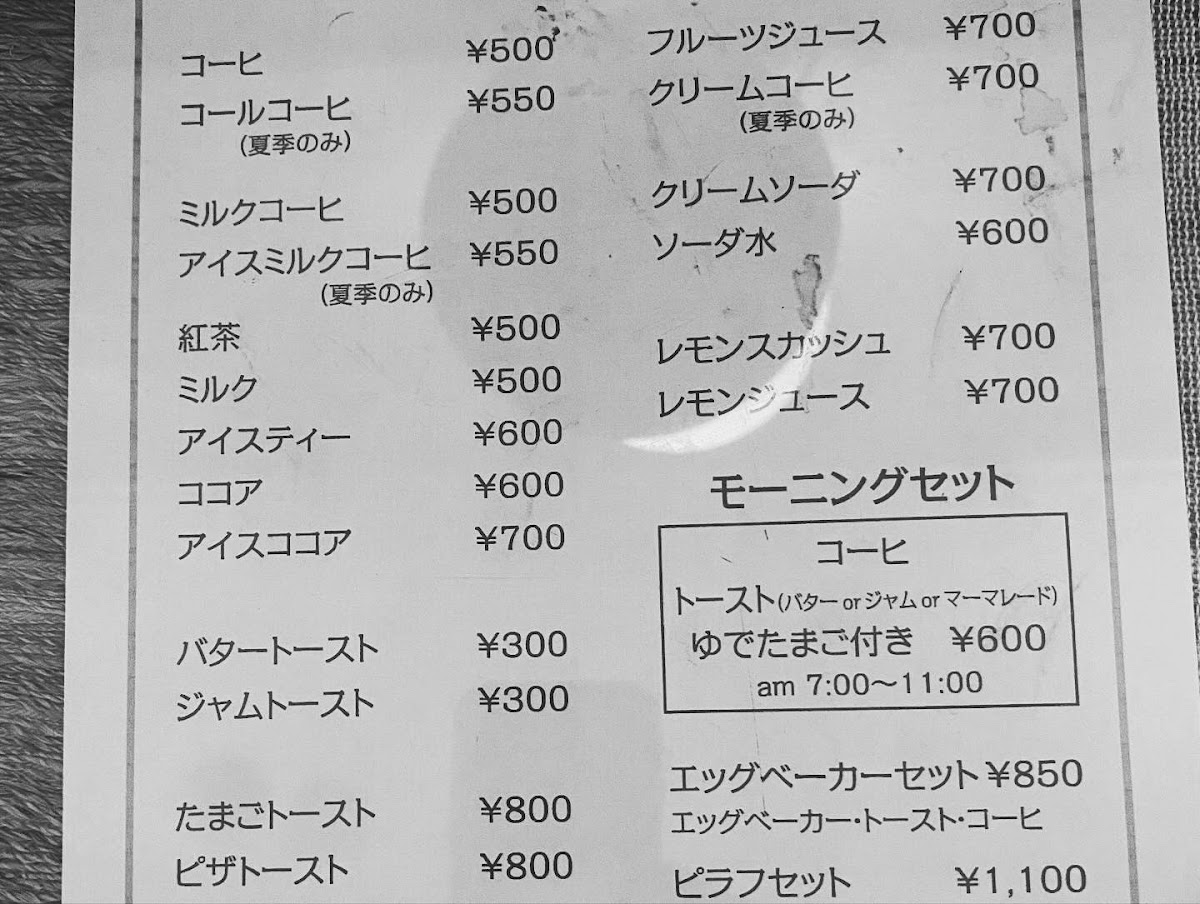 コーヒ ¥500
コールコーヒ ¥550
(夏季のみ)
ミルクコーヒ ¥500
アイスミルクコーヒ ¥550
(夏季のみ)
紅茶 ¥500
ミルク ¥500
アイスティー ¥600
ココア ¥600
アイスココア ¥700
バタートースト ¥300
ジャムトースト ¥300
たまごトースト ¥800
ピザトースト ¥800
フルーツジュース ¥700
クリームコーヒ ¥700
(夏季のみ)
クリームソーダ ¥700
ソーダ水 ¥600
レモンスカッシュ ¥700
レモンジュース ¥700
モーニングセット
コーヒ
トースト(バター or ジャム or マーマレード)
ゆでたまご付き ¥600
am 7:00〜11:00
エッグベーカーセット ¥850
エッグベーカー・トースト・コーヒ
ピラフセット ¥1,100